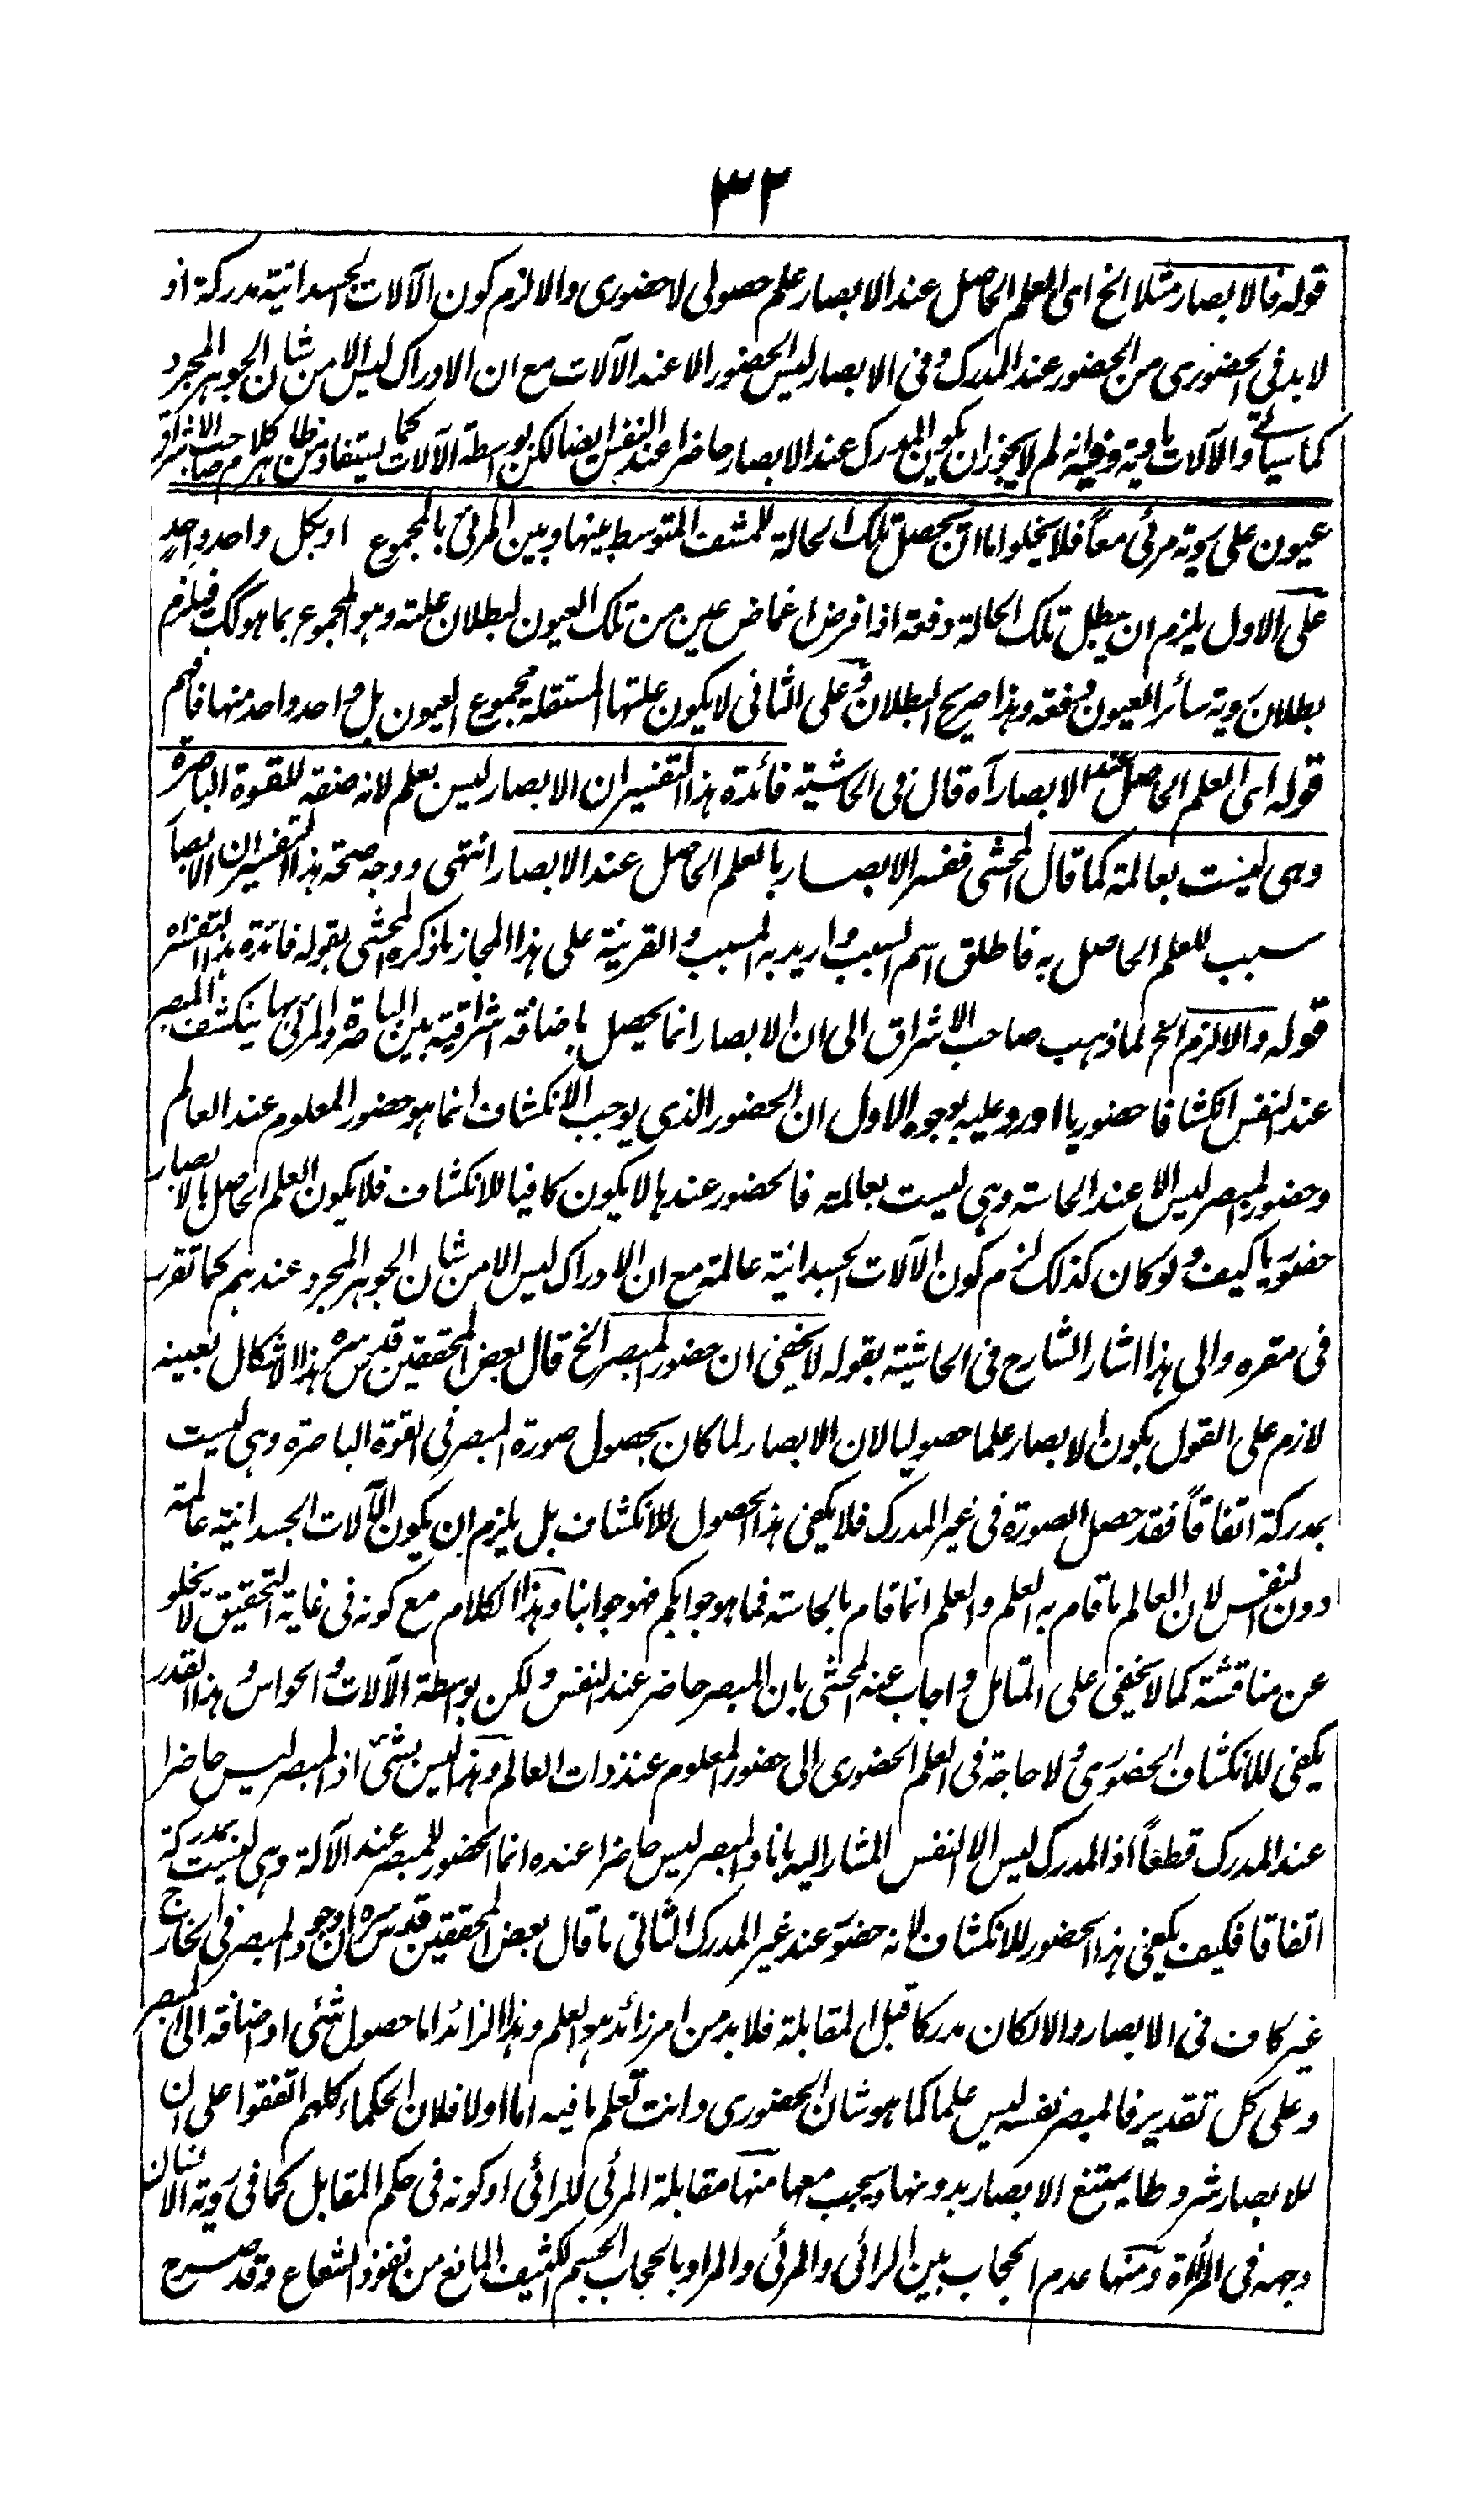 ٣٢
قوله فالابصار مثلا الخ اى العلم الحاصل عند الابصار علم حصولى لا حضورى والا لزم كون الآلات الجسدانية مدركة اذ
لا بد فى الحضورى من الحضور عند المدرك وفى الابصار ليس الحضور الا عند الآلات مع ان الادراك ليس الا من شان الجوهر المجرد
كما سياتى والآلات مادية وفيه انه لم لا يجوز ان يكون المدرك عند الابصار حاضرا عند النفس ايضا لكن بواسطة الآلات كما يستفاد من ظاهر كلام صاحب الاشراق
عيون على روية مرئى معاً فلا يخلوا اما ان يحصل تلك الحالة للمشف المتوسط بينها وبين المرئى بالمجموع او بكل واحد واحدٍ
على الاول يلزم ان يبطل تلك الحالة دفعة اذا فرض اغماض عين من تلك العيون لبطلان علته وهو المجموع بما هو كك فيلزم
بطلان روية سائر العيون دفعة وهذا صريح البطلان وعلى الثانى لا يكون علتها المستقلة مجموع العيون بل واحد واحد منها فافهم
قوله اى العلم الحاصل عند الابصار آه قال فى الحاشية فائدة هذا التفسير ان الابصار ليس بعلم لانه صفة للقوة الباصرة
وهى ليست بعالمة كما قال المحشى ففسر الابصار بالعلم الحاصل عند الابصار انتهى ووجه صحة هذا التفسير ان الابصار
سبب للعلم الحاصل به فاطلق اسم السبب واريد به المسبب والقرينة على هذا المجاز ما ذكره المحشى بقوله فائدة هذا التفسير
قوله والا لزم الخ لما ذهب صاحب الاشراق الى ان الابصار انما يحصل باضافة اشراقية بين الباصرة والمرئى بها ينكشف المبصر
عند النفس انكشافا حضوريا اورد عليه بوجوه الاول ان الحضور الذى يوجب الانكشاف انما هو حضور المعلوم عند العالم
وحضور المبصر ليس الا عند الحاسة وهى ليست بعالمة فالحضور عندها لا يكون كافيا للانكشاف فلا يكون العلم الحاصل بالابصار
حضوريا كيف ولو كان كذلك لزم كون الآلات الجسدانية عالمة مع ان الادراك ليس الا من شان الجوهر المجرد عندهم كما تقرر
فى مقره والى هذا اشار الشارح فى الحاشية بقوله لا يخفى ان حضور المبصر الخ قال بعض المحققين قدس سره هذا الاشكال بعينه
لازم على القول بكون الابصار علما حصوليا لان الابصار لما كان بحصول صورة المبصر فى القوة الباصرة وهى ليست
بمدركة اتفاقاً فقد حصل الصورة فى غير المدرك فلا يكفى هذا الحصول للانكشاف بل يلزم ان يكون الآلات الجسدانية عالمة
دون النفس لان العالم ما قام به العلم والعلم انما قام بالحاسة فما هو جوابكم فهو جوابنا وهذا الكلام مع كونه فى غاية التحقيق لا يخلو
عن مناقشة كما لا يخفى على المتامل واجاب عنه المحشى بان المبصر حاضر عند النفس ولكن بواسطة الآلات والحواس وهذا القدر
يكفى للانكشاف الحضورى ولا حاجة فى العلم الحضورى الى حضور المعلوم عند ذات العالم وهذا ليس بشئ اذ المبصر ليس حاضرا
عند المدرك قطعاً اذ المدرك ليس الا النفس المشار اليه بانا والمبصر ليس حاضرا عنده انما الحضور للمبصر عند الآلة وهى ليست بمدركة
اتفاقا فكيف يكفى هذا الحضور للانكشاف لانه حضور عند غير المدرك الثانى ما قال بعض المحققين قدس سره ان وجود المبصر فى الخارج
غير كاف فى الابصار والا لكان مدركا قبل المقابلة فلا بد من امر زائد هو العلم وهذا الزائد اما حصول شئى او اضافة الى المبصر
وعلى كل تقدير فالمبصر نفسه ليس علما كما هو شان الحضورى وانت تعلم ما فيه اما اولا فلان الحكماء كلهم اتفقوا على ان
للابصار شروطا يمتنع الابصار بدونها ويجب معها منها مقابلة المرئى للرائى او كونه فى حكم المقابل كما فى روية الانسان
وجهه فى المرآة ومنها عدم الحجاب بين الرائى والمرئى والمراد بالحجاب الجسم الكثيف المانع من نفوذ الشعاع وقد صرح